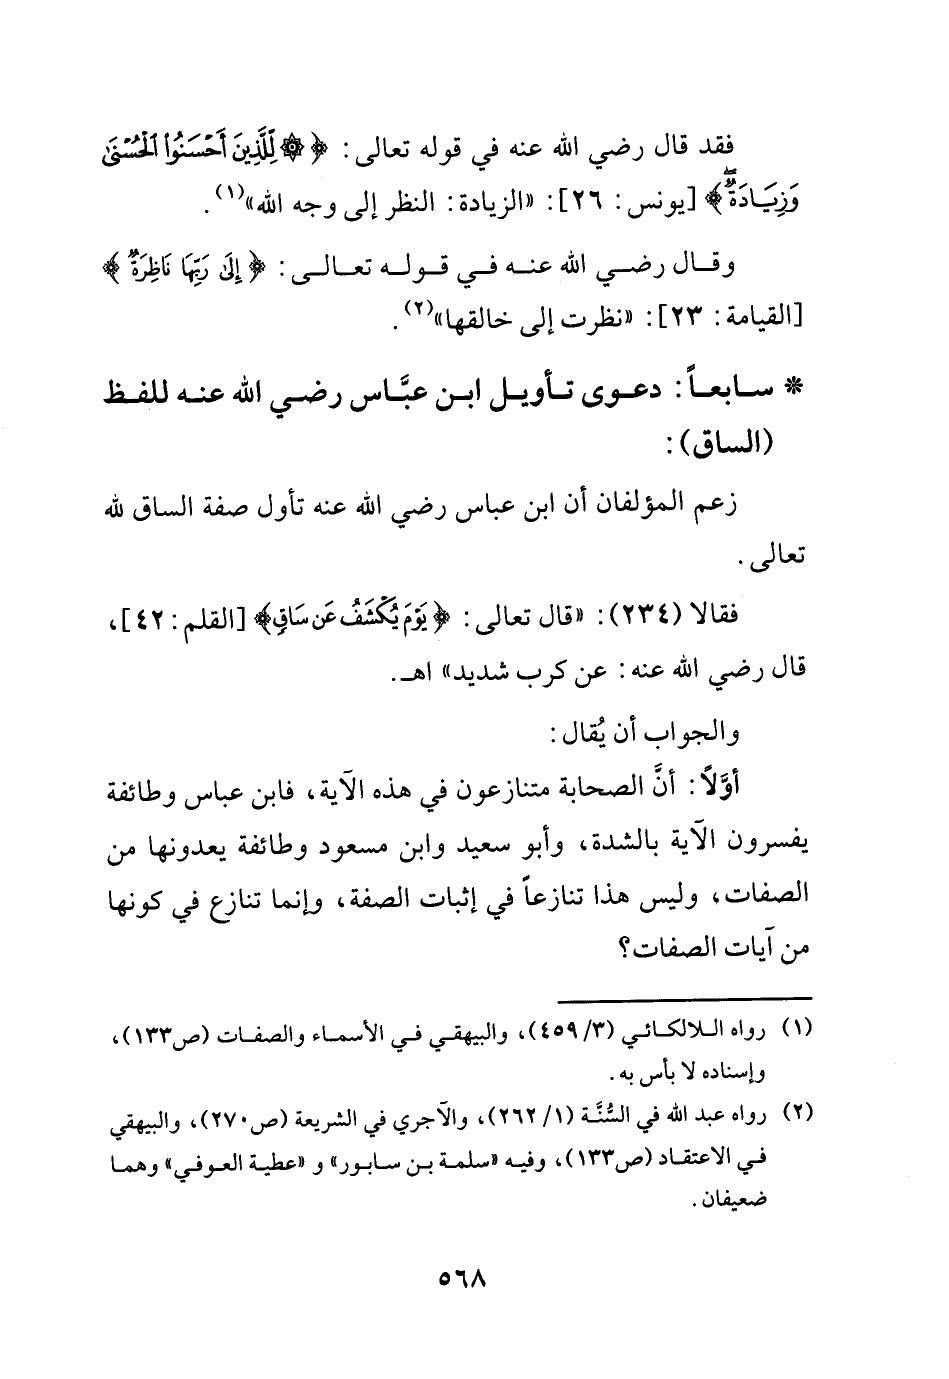 فقد قال رضي الله عنه في قوله تعالى: ﴿۞ لِّلَّذِينَ أَحْسَنُوا۟ ٱلْحُسْنَىٰ
وَزِيَادَةٌۖ﴾ [يونس: ٢٦]: «الزيادة: النظر إلى وجه الله»(١).
وقال رضي الله عنه في قوله تعالى: ﴿إِلَىٰ رَبِّهَا نَاظِرَةٌ﴾
[القيامة: ٢٣]: «نظرت إلى خالقها»(٢).
* سابعاً: دعوى تأويل ابن عبَّاس رضي الله عنه للفظ
(الساق):
زعم المؤلفان أن ابن عباس رضي الله عنه تأول صفة الساق لله
تعالى.
فقالا (٢٣٤): «قال تعالى: ﴿يَوْمَ يُكْشَفُ عَن سَاقٍ﴾ [القلم: ٤٢]،
قال رضي الله عنه: عن كرب شديد» اهـ.
والجواب أن يُقال:
أوَّلاً: أنَّ الصحابة متنازعون في هذه الآية، فابن عباس وطائفة
يفسرون الآية بالشدة، وأبو سعيد وابن مسعود وطائفة يعدونها من
الصفات، وليس هذا تنازعاً في إثبات الصفة، وإنما تنازع في كونها
من آيات الصفات؟
(١) رواه اللالكائي (٤٥٩/٣)، والبيهقي في الأسماء والصفات (ص١٣٣)،
وإسناده لا بأس به.
(٢) رواه عبد الله في السُّنَّة (٢٦٢/١)، والآجري في الشريعة (ص٢٧٠)، والبيهقي
في الاعتقاد (ص١٣٣)، وفيه «سلمة بن سابور» و «عطية العوفي» وهما
ضعيفان.
٥٦٨